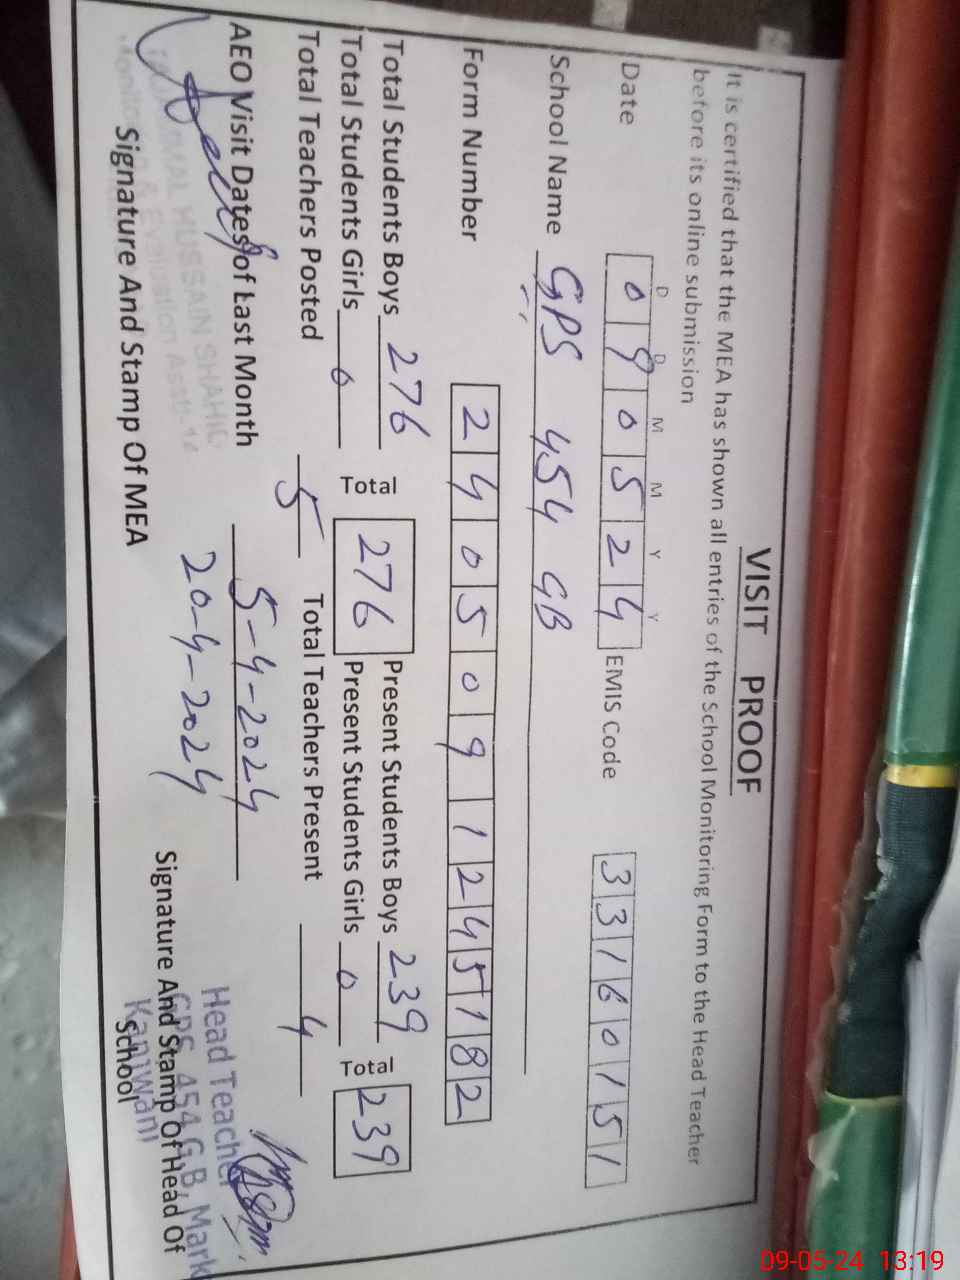 VISIT PROOF
It is certified that the MEA has shown all entries of the School Monitoring Form to the Head Teacher
before its online submission
D D M M Y Y
Date 0 9 0 5 2 4 EMIS Code 3 3 1 6 0 1 5 1
School Name GPS 454 GB
Form Number 2 4 0 5 0 9 1 2 4 5 1 8 2
Total Students Boys 276 Total 276 Present Students Boys 239 Total 239
Total Students Girls 0 Present Students Girls 0
Total Teachers Posted 5 Total Teachers Present 4
AEO Visit Dates of Last Month 5-4-2024
20-4-2024
HUSSAIN SHAHID
Monitoring & Evaluation Asstt.
Signature And Stamp Of MEA
Head Teacher
GPS 454 G.B, Mark
Kaniwani
Signature And Stamp Of Head Of
School
09-05-24 13:19